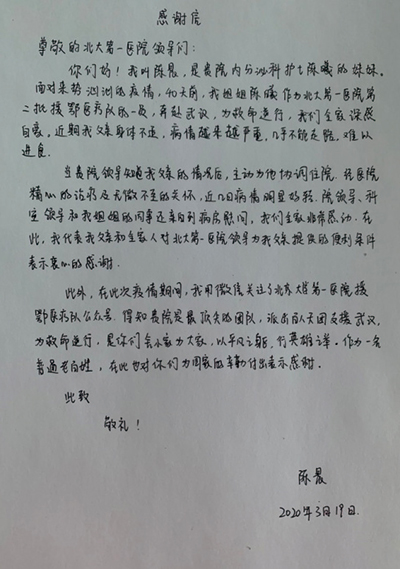 感谢信
尊敬的北大第一医院领导们：
你们好！我叫陈晨，是贵院内分泌科护士陈曦的妹妹。
面对来势汹汹的疫情，40天前，我姐姐陈曦作为北大第一医院第
二批援鄂医疗队的一员，奔赴武汉，为救命逆行，我们全家深感
自豪，近期我父亲身体不适，病情越来越严重，几乎不能走路，难以
进食。
当贵院领导知道我父亲的情况后，主动为他协调住院。经医院
精心的治疗及无微不至的关怀，近几日病情明显好转。院领导、科
室领导和我姐姐的同事还亲自到病房慰问，我们全家非常感动。在
此，我代表我父亲和全家人对北大第一医院领导为我父亲提供的便利条件
表示衷心的感谢。
此外，在此次疫情期间，我用微信关注了北京大学第一医院援
鄂医疗队公众号。得知贵院是最顶尖的团队，派出百人天团支援武汉，
为救命逆行，是你们舍小家为大家，以平凡之躯，行英雄之举。作为一名
普通老百姓，在此也对你们为国家的辛勤付出表示感谢。
此致
敬礼！
陈晨
2020年3月19日.